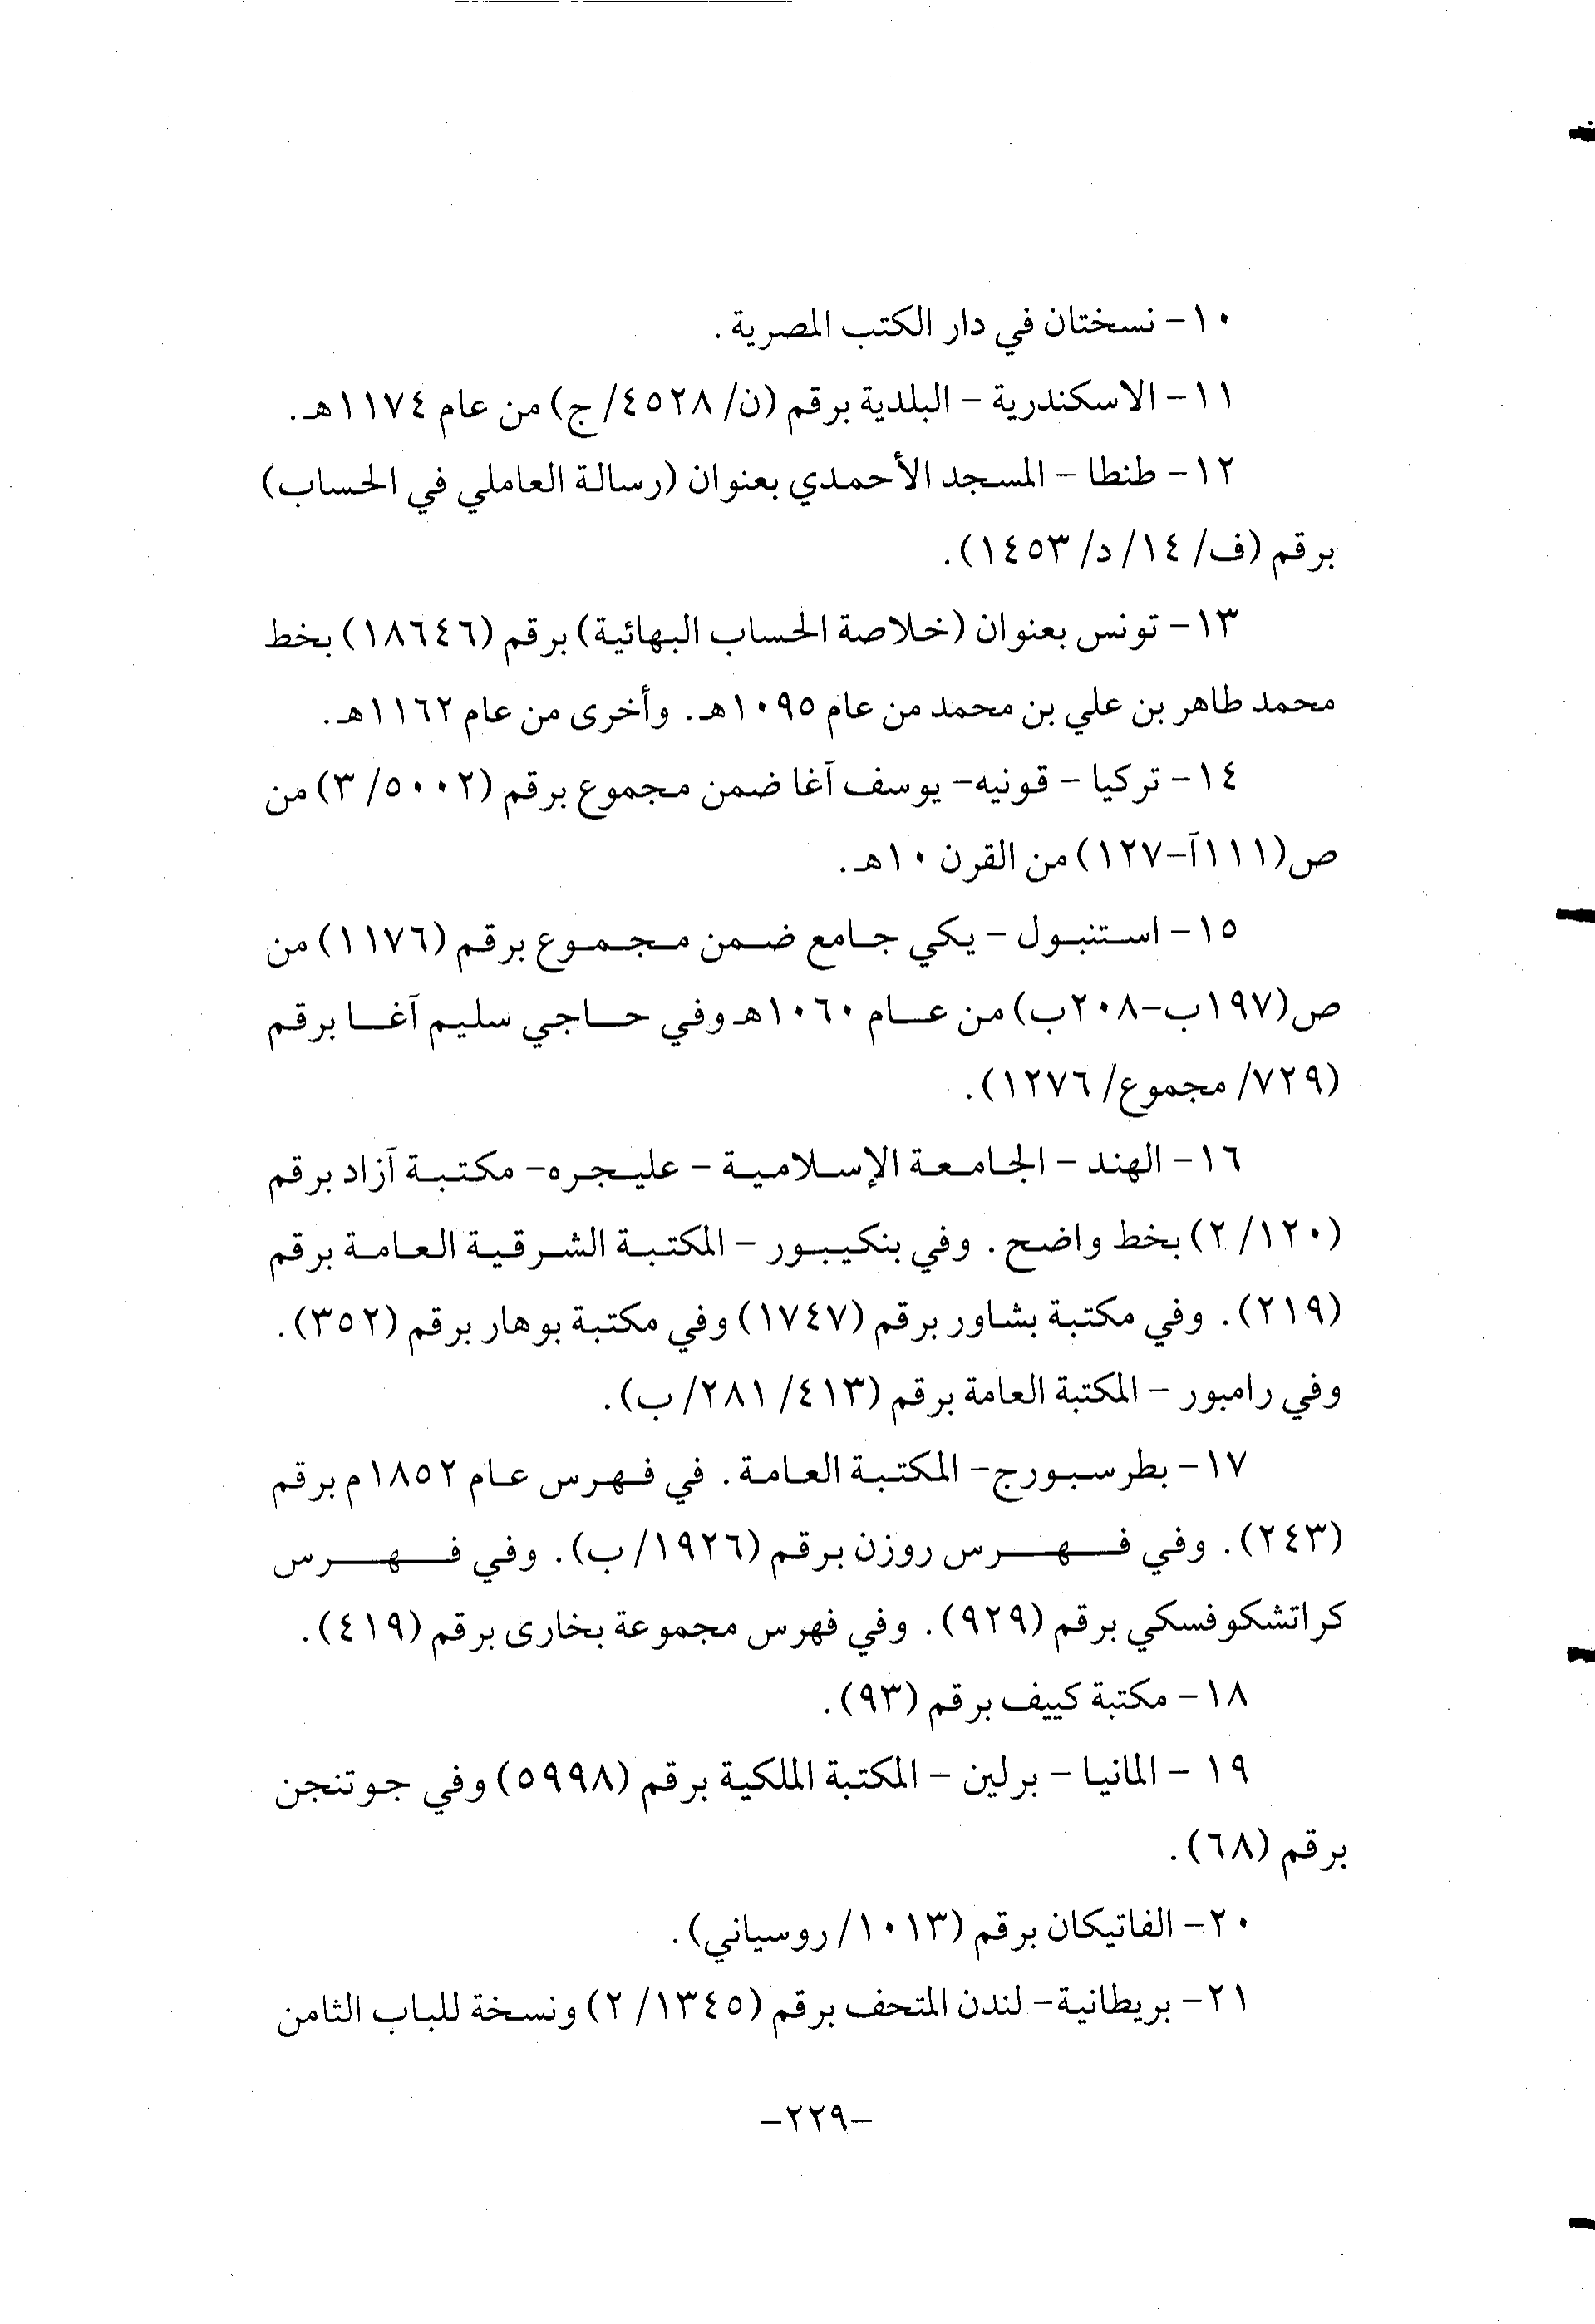 ١٠- نسختان في دار الكتب المصرية.
١١- الاسكندرية - البلدية برقم (ن/ ٤٥٢٨/ ج) من عام ١١٧٤هـ.
١٢- طنطا - المسجد الأحمدي بعنوان (رسالة العاملي في الحساب)
برقم (ف/ ١٤/ د/ ١٤٥٣).
١٣- تونس بعنوان (خلاصة الحساب البهائية) برقم (١٨٦٤٦) بخط
محمد طاهر بن علي بن محمد من عام ١٠٩٥هـ. وأخرى من عام ١١٦٢هـ.
١٤- تركيا - قونيه- يوسف آغا ضمن مجموع برقم (٥٠٠٢/ ٣) من
ص(١١١آ-١٢٧) من القرن ١٠هـ.
١٥- استنبول - يكي جامع ضمن مجموع برقم (١١٧٦) من
ص(١٩٧ب-٢٠٨ب) من عام ١٠٦٠هـ وفي حاجي سليم آغا برقم
(٧٢٩/ مجموع/ ١٢٧٦).
١٦- الهند - الجامعة الإسلامية - عليجره- مكتبة آزاد برقم
(١٢٠/ ٢) بخط واضح. وفي بنكيبور - المكتبة الشرقية العامة برقم
(٢١٩). وفي مكتبة بشاور برقم (١٧٤٧) وفي مكتبة بوهار برقم (٣٥٢).
وفي رامبور - المكتبة العامة برقم (٤١٣/ ٢٨١/ ب).
١٧- بطرسبورج- المكتبة العامة. في فهرس عام ١٨٥٢م برقم
(٢٤٣). وفي فهرس روزن برقم (١٩٢٦/ ب). وفي فهرس
كراتشكوفسكي برقم (٩٢٩). وفي فهرس مجموعة بخارى برقم (٤١٩).
١٨- مكتبة كييف برقم (٩٣).
١٩ - المانيا - برلين - المكتبة الملكية برقم (٥٩٩٨) وفي جوتنجن
برقم (٦٨).
٢٠- الفاتيكان برقم (١٠١٣/ روسياني).
٢١- بريطانية- لندن المتحف برقم (١٣٤٥/ ٢) ونسخة للباب الثامن
-٢٢٩-